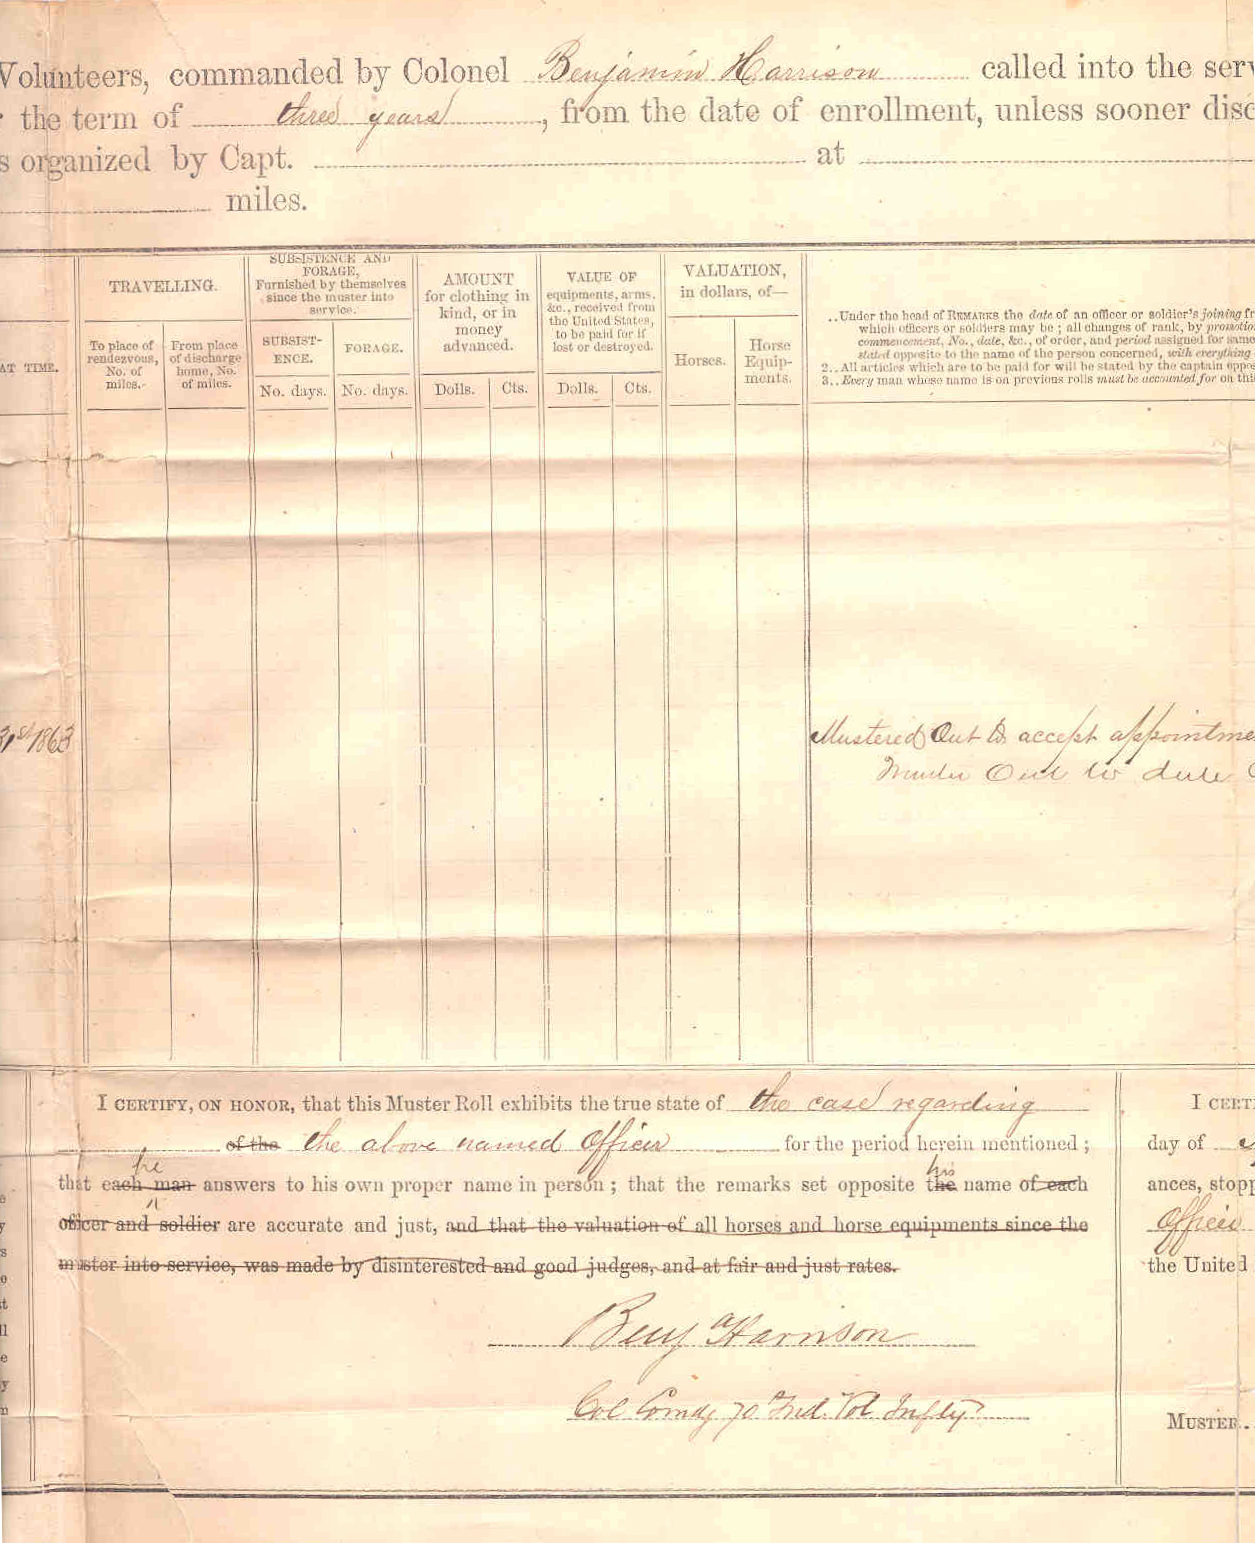 Volunteers, commanded by Colonel Benjamin Harrison called into the serv
the term of three years, from the date of enrollment, unless sooner disc
s organized by Capt. at
miles.
AT TIME.
TRAVELLING.
To place of rendezvous, No. of miles.
From place of discharge home, No. of miles.
SUBSISTENCE AND FORAGE,
Furnished by themselves since the muster into service.
SUBSIST-
ENCE.
FORAGE.
No. days. No. days.
AMOUNT
for clothing in
kind, or in
money
advanced.
Dolls. Cts.
VALUE OF
equipments, arms,
&c., received from
the United States,
to be paid for if
lost or destroyed.
Dolls. Cts.
VALUATION,
in dollars, of—
Horses.
Horse
Equip-
ments.
..Under the head of REMARKS the date of an officer or soldier's joining fr
which officers or soldiers may be; all changes of rank, by promotio
commencement, No., date, &c., of order, and period assigned for same
stated opposite to the name of the person concerned, with everything
2..All articles which are to be paid for will be stated by the captain oppos
3..Every man whose name is on previous rolls must be accounted for on thi
31st 1863
Mustered Out to accept appointme
Muster Out to date
I CERTIFY, ON HONOR, that this Muster Roll exhibits the true state of the case regarding
of the the above named Officer for the period herein mentioned;
he
that each man answers to his own proper name in person; that the remarks set opposite the his name of each
officer and soldier are accurate and just, and that the valuation of all horses and horse equipments since the
muster into service, was made by disinterested and good judges, and at fair and just rates.
Benj Harrison
Col Comdg 70 Ind. Vol Inftry
I CERT
day of
ances, stopp
Officer
the United
MUSTER..